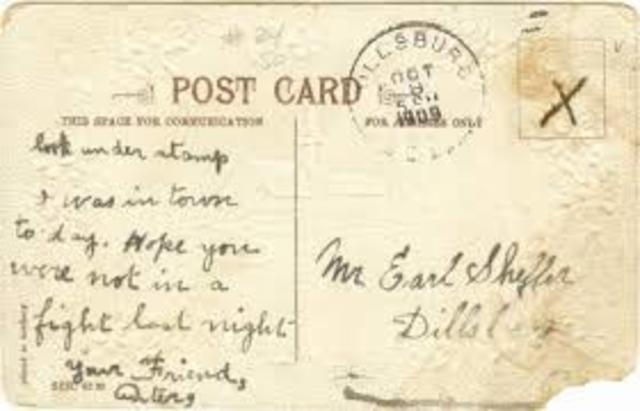 # 24
50
ILLSBURG
OCT
1909
POST CARD
THIS SPACE FOR COMMUNICATION
FOR ONLY
look under stamp
I was in town
to day. Hope you
were not in a
fight last night
Your Friend,
X
Mr Earl Sheffer